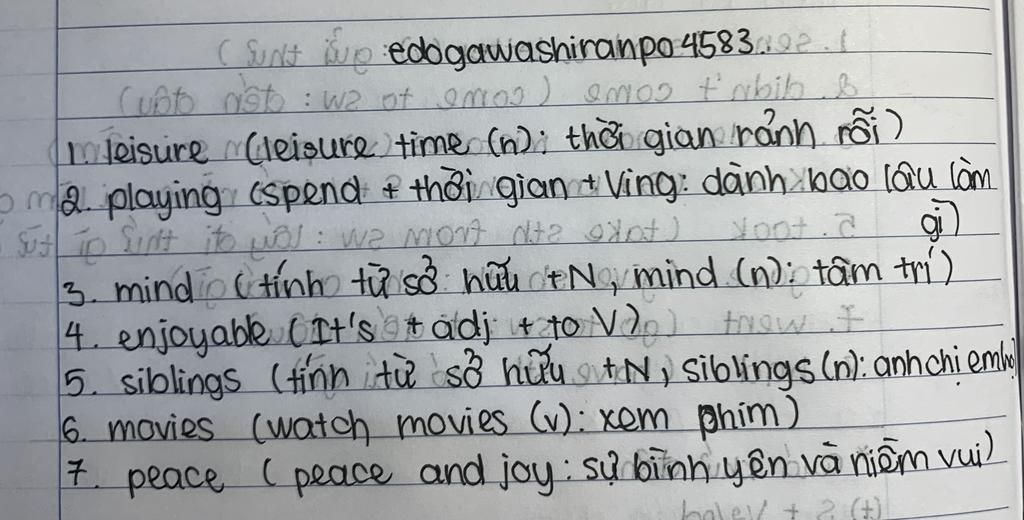 edogawashiranpo4583
1. leisure (leisure time (n): thời gian rảnh rỗi)
2. playing (spend + thời gian + Ving: dành bao lâu làm
gì)
3. mind (tính từ sở hữu +N, mind (n): tâm trí)
4. enjoyable (It's + adj + to V)
5. siblings (tính từ sở hữu +N, siblings (n): anh chị em
6. movies (watch movies (v): xem phim)
7. peace (peace and joy: sự bình yên và niềm vui)